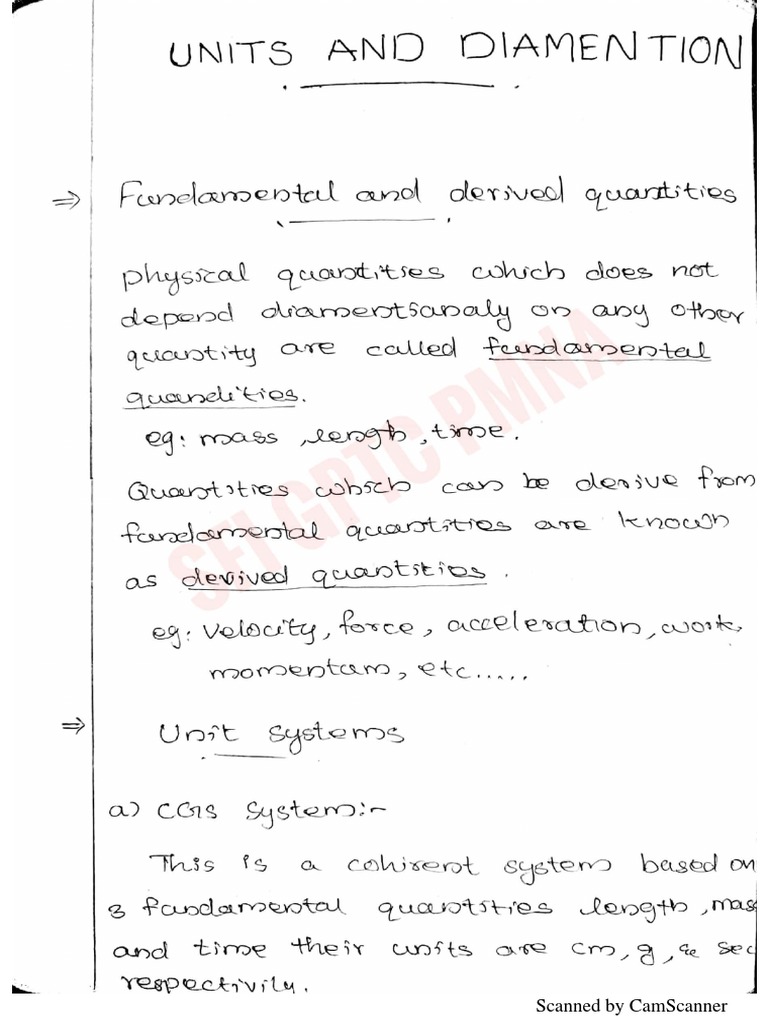 UNITS AND DIAMENTION
⇒ Fundamental and derived quantities
physical quantities which does not
depend diamentsanaly on any other
quantity are called fundamental
quandities.
eg: mass, length, time.
Quantities which can be derive from
fundamental quantities are known
as derived quantities.
eg: velocity, force, acceleration, work,
momentum, etc.....
⇒ Unit systems
a) CGS System:-
This is a cohirent system based on
3 fundamental quantities length, mass
and time their units are cm, g, & sec
respectivily.
SFI GPTC PMNA
Scanned by CamScanner